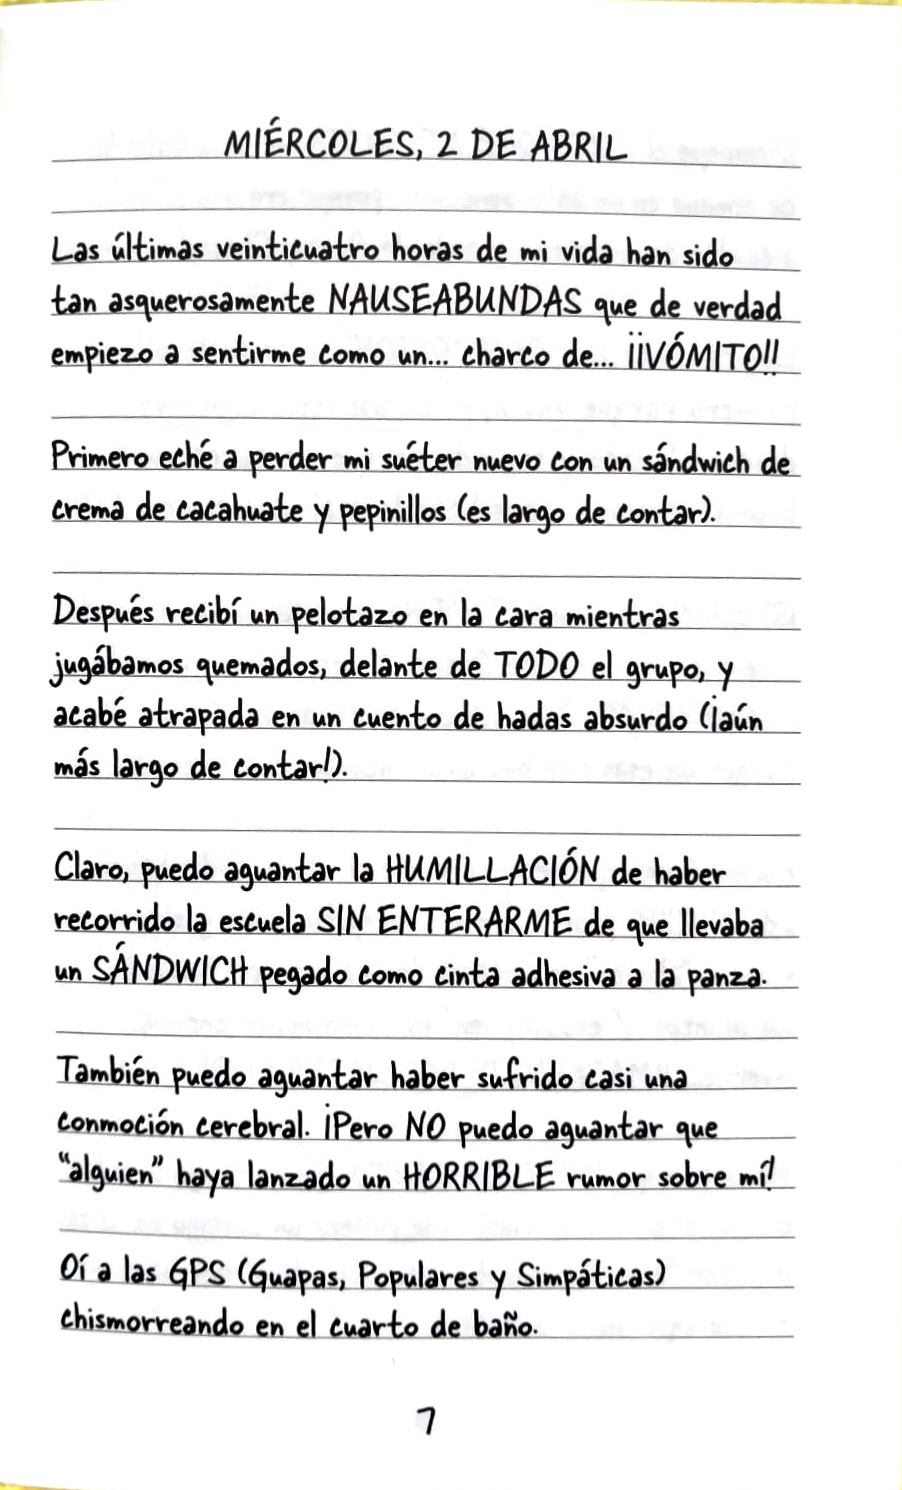 MIÉRCOLES, 2 DE ABRIL
Las últimas veinticuatro horas de mi vida han sido
tan asquerosamente NAUSEABUNDAS que de verdad
empiezo a sentirme como un... charco de... ¡¡VÓMITO!!
Primero eché a perder mi suéter nuevo con un sándwich de
crema de cacahuate y pepinillos (es largo de contar).
Después recibí un pelotazo en la cara mientras
jugábamos quemados, delante de TODO el grupo, y
acabé atrapada en un cuento de hadas absurdo (¡aún
más largo de contar!).
Claro, puedo aguantar la HUMILLACIÓN de haber
recorrido la escuela SIN ENTERARME de que llevaba
un SÁNDWICH pegado como cinta adhesiva a la panza.
También puedo aguantar haber sufrido casi una
conmoción cerebral. ¡Pero NO puedo aguantar que
"alguien" haya lanzado un HORRIBLE rumor sobre mí!
Oí a las GPS (Guapas, Populares y Simpáticas)
chismorreando en el cuarto de baño.
7